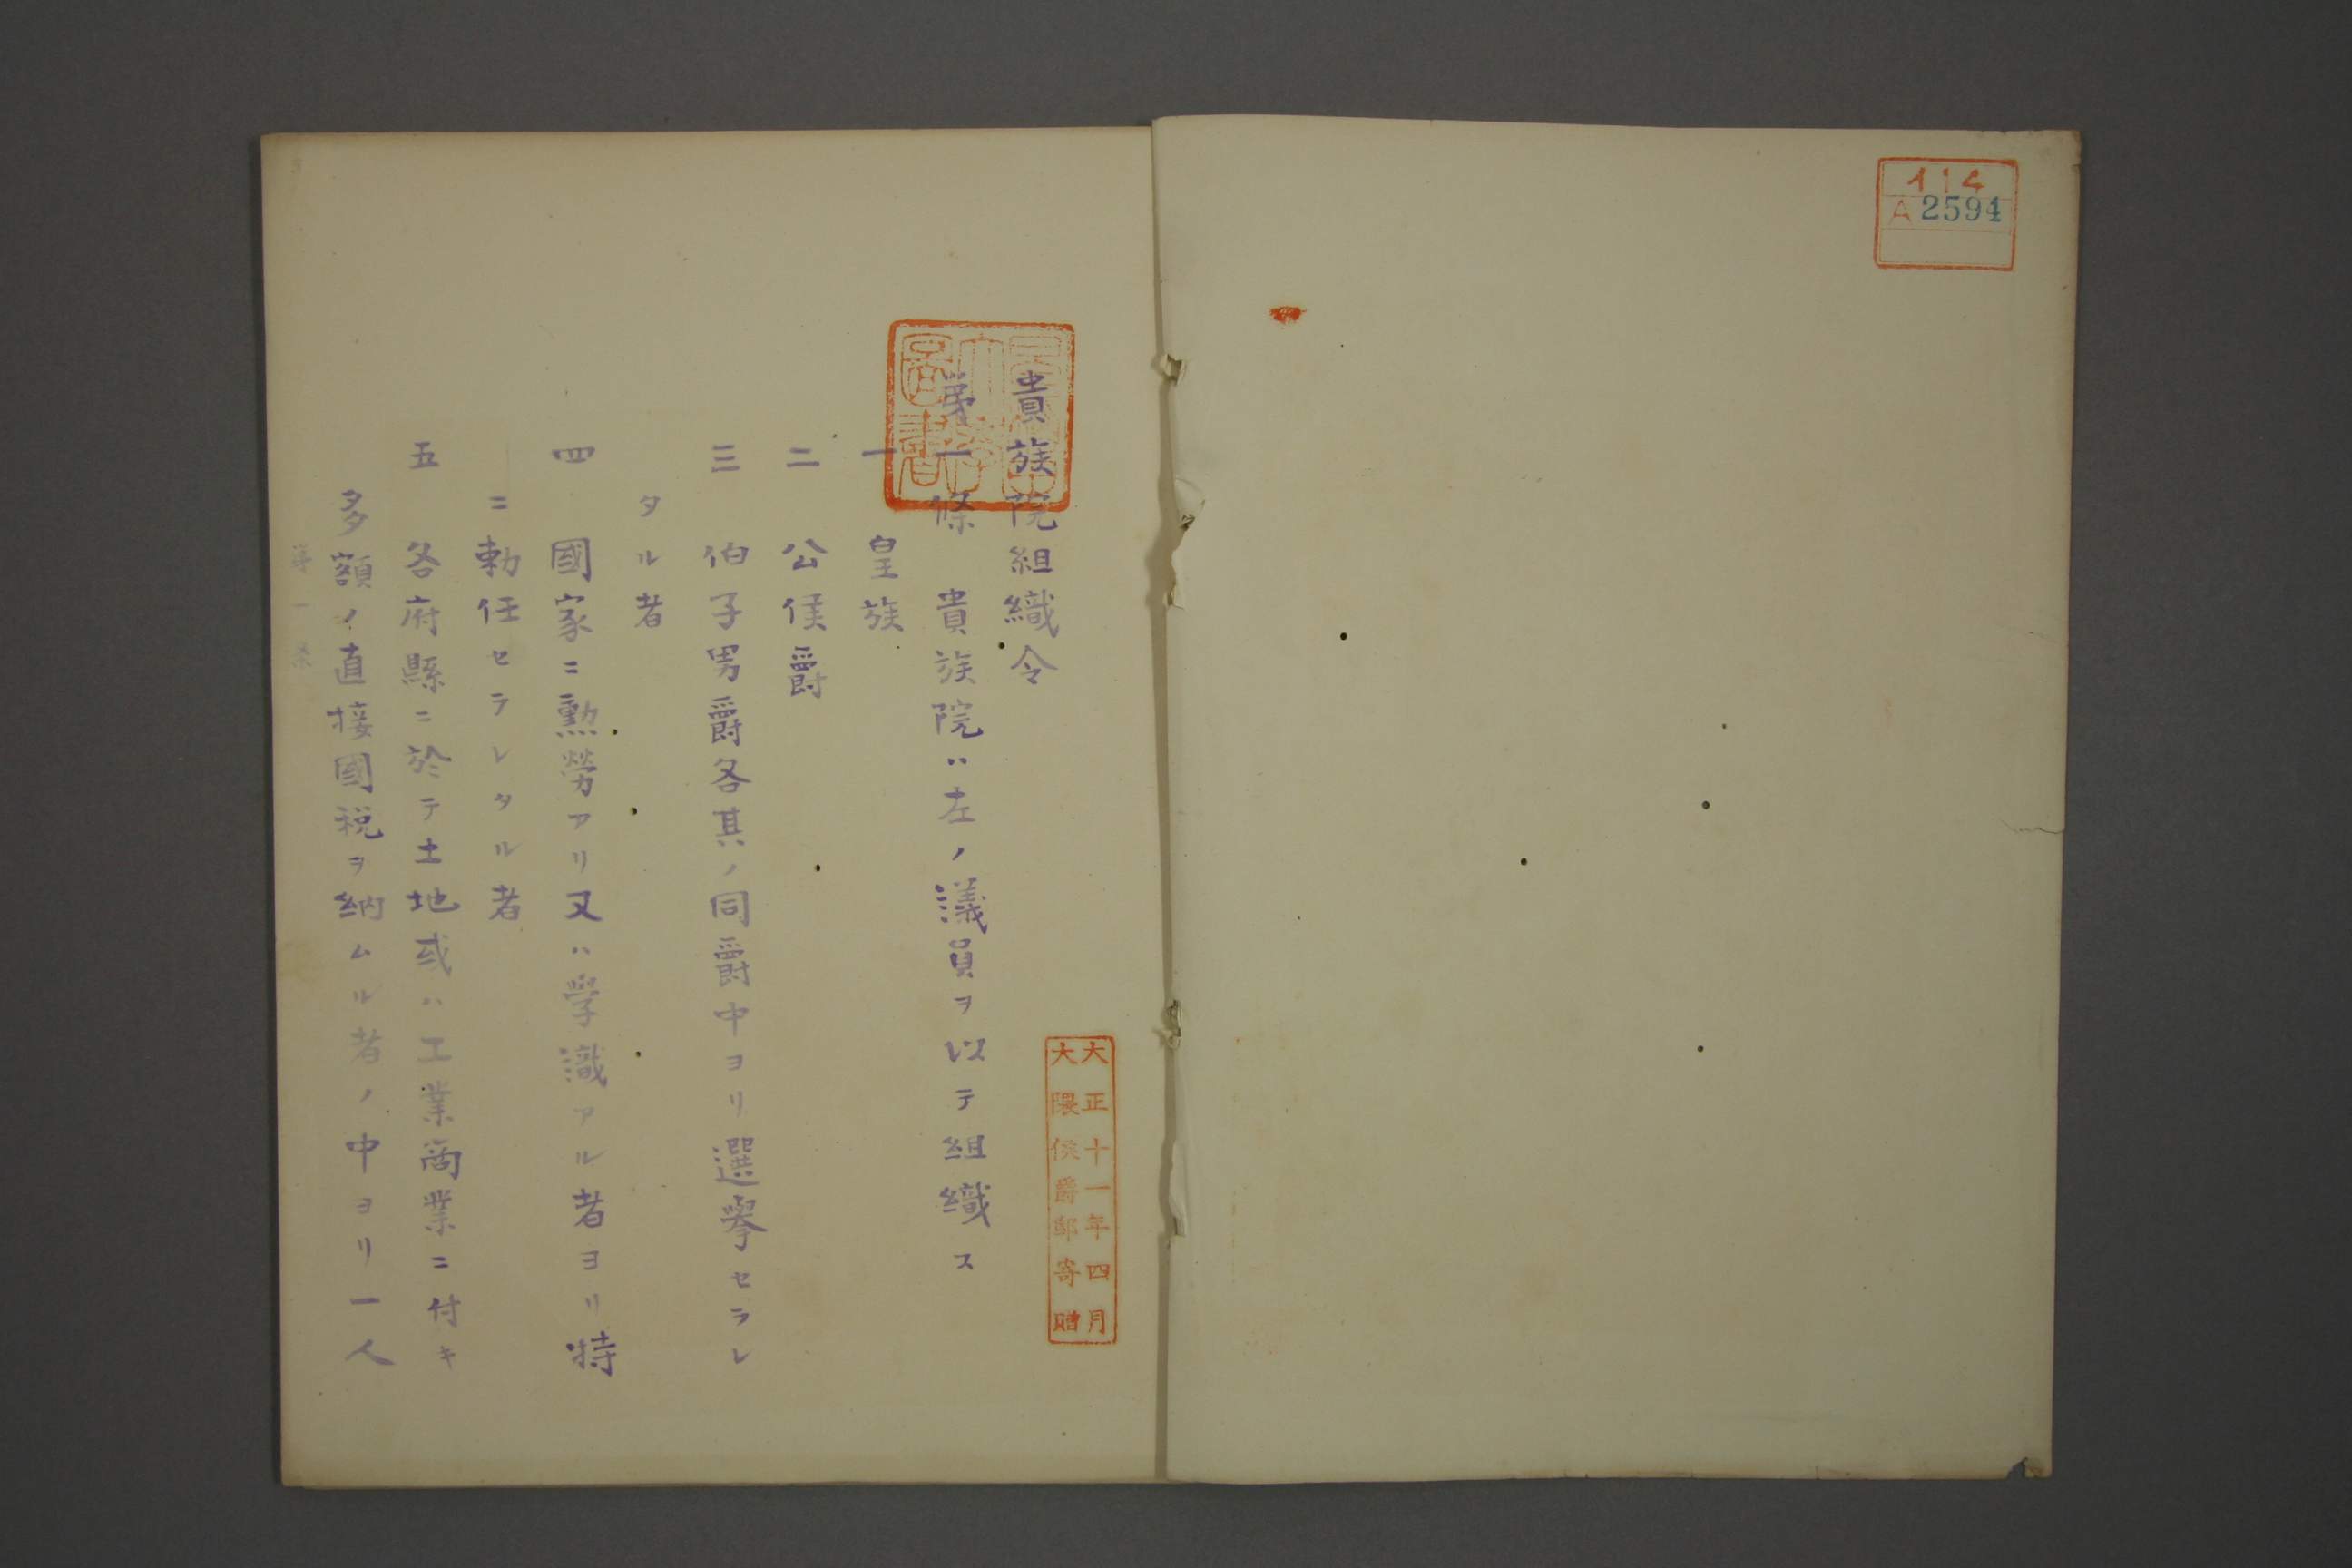 114
A 2594
大正十一年四月
大隈侯爵邸寄贈
貴族院組織令
第一條　貴族院ハ左ノ議員ヲ以テ組織ス
一　皇族
二　公侯爵
三　伯子男爵各其ノ同爵中ヨリ選擧セラレ
タル者
四　國家ニ勲勞アリ又ハ學識アル者ヨリ特
ニ勅任セラレタル者
五　各府縣ニ於テ土地或ハ工業商業ニ付キ
多額ノ直接國税ヲ納ムル者ノ中ヨリ一人
第一条